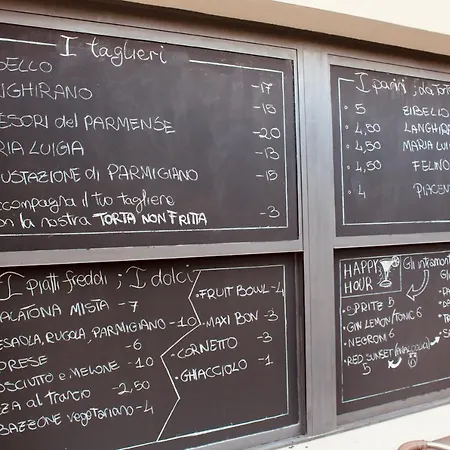 I taglieri
DELLO
NGHIRANO -17
-15
SORI del PARMENSE -20
RIA LUIGIA -13
USTAZIONE di PARMIGIANO -15
ccompagna il tuo tagliere
on la nostra TORTA NON FRITTA -3
I panini ; da TOR
5 ZIBELLO
4,50 LANGHIRA
4,50 MARIA LUI
4,50 FELINO
4 PIACEN
I piatti freddi ; I dolci
ALATONA MISTA -7
ESAOLA, RUCOLA, PARMIGIANO -10
-6
PRESE
OSCIUTTO e MELONE -10
ZZA al trancio -2,50
BAZZONE vegetariano -4
FRUIT BOWL -4
MAXI BON -3
CORNETTO -3
GHIACCIOLO -1
HAPPY HOUR
SPRITZ 5
GIN LEMON/TONIC 6
NEGRONI 6
RED SUNSET (ANALCOLICO) 5
Gli intramont